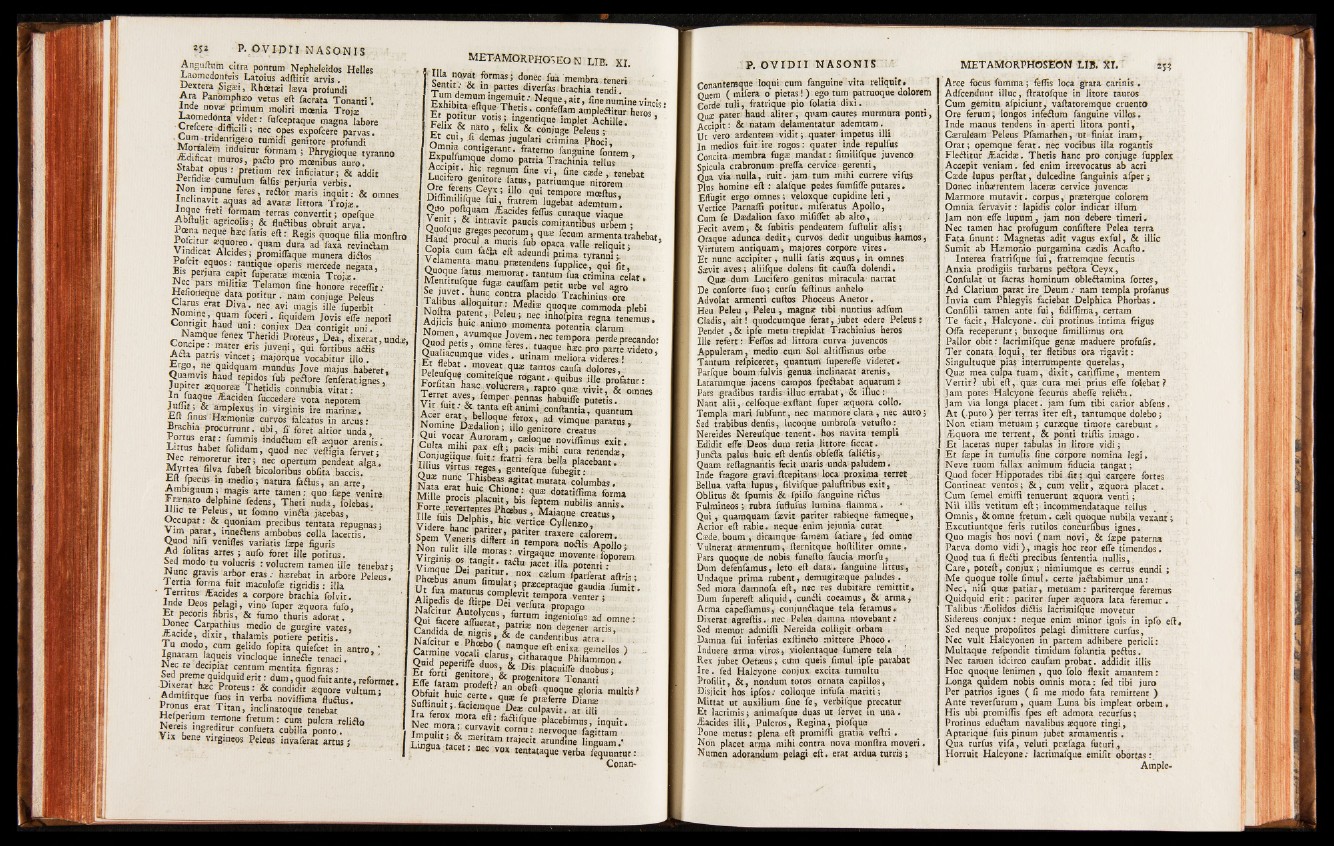 252 P. OVIDII NASONIS
Angustum citra pontum Nepheleïdos Helles
Laomedonteis Latoius adstitit arvis.
Dextera Sigæi, Rhœtæi læva profundi
Ara Panomphæo vetus est sacrata Tonanti.
Inde novæ primum moliri mœnia Trojæ
Laomedonta videt: susceptaque magna labore
Crescere difficili; nec opes exposcere parvas.
Cum tridentigero tumidi genitore profundi
Mortalem induitur formam; Phrygioque tyranno
Ædificat muros, pacto pro mœnibus auro.
Stabat opus: pretium rex inficiatur; & addit
Perfidiæ cumulum falsis perjuria verbis.
Non impune feres, rector maris inquit: & omnes
Inclinavit aquas ad avaræ littora Trojæ.
Inque freti formam terras convertit; opesque
Abstulit agricolis; & fluctibus obruit arva.
Pœna neque hæc satis est: Regis quoque filia monstro
Poscitur æquoreo. quam dura ad saxa revinctam
Vindicat Alcides; promissaque munera dictos
Poscit equos: tantique operis mercede negata,
Bis perjura capit superatæ mœnia Trojæ.
Nec pars militiæ Telamon sine honore recessit:
Hesioneque data potitur. nam conjuge Peleus
Clarus erat Diva. nec avi magis ille superbit
Nomine, quam soceri. siquidem Jovis esse nepoti
Contigit haud uni: conjux Dea contigit uni.
Namque senex Thetidi Proteus, Dea, dixerat, undæ,
Concipe: mater eris juveni, qui fortibus actis
Acta patris vincet; majorque vocabitur illo.
Ergo, ne quidquam mundus Jove majus haberet,
Quamvis haud tepidos sub pectore senserat ignes,
Jupiter æquoreæ Thetidis connubia vitat:
In suaque Æaciden succedere vota nepotem
Jussit; & amplexus in virginis ire marinæ.
Est sinus Hæmoniæ curvos falcatus in arcus:
Brachia procurrunt. ubi, si foret altior unda,
Portus erat: summis inductum est æquor arenis.
Littus habet solidum, quod nec vestigia servet;
Nec remoretur iter; nec opertum pendeat alga.
Myrtea silva subest bicoloribus obsita baccis.
Est specus in medio; natura factus, an arte,
Ambiguum; magis arte tamen: quo sæpe venire
Frænato delphine sedens, Theti nuda, solebas.
Illic te Peleus, ut somno vincta jacebas,
Occupat: & quoniam precibus tentata repugnas;
Vim parat, innectens ambobus colla lacertis.
Quod nisi venisses variatis sæpe figuris
Ad solitas artes; auso foret ille potitus.
Sed modo tu volucris: volucrem tamen ille tenebat;
Nunc gravis arbor eras: hærebat in arbore Peleus.
Tertia forma fuit maculosæ tigridis: illa
Territus Æacides a corpore brachia solvit.
Inde Deos pelagi, vino super æquora fuso,
Et pecoris fibris, & fumo thuris adorat.
Donec Carpathius medio de gurgite vates,
Æacide, dixit, thalamis potiere petitis.
Tu modo, cum gelido sopita quiescet in antro,
Ignaram laqueis vincloque innecte tenaci.
Nec te decipiat centum mentita figuras:
Sed preme quidquid erit: dum, quod fuit ante, reformet.
Dixerat hæc Proteus: & condidit æquore vultum;
Admisitque suos in verba novissima fluctus.
Pronus erat Titan, inclinatoque tenebat
Hesperium temone fretum: cum pulcra relicto
Nereis ingreditur consueta cubilia ponto.
Vix bene virgineos Peleus invaserat artus;
METAMORPHOSEON LIB. XI.
Illa novat formas; donec sua membra teneri
Sentit: & in partes diversas brachia tendi.
Tum demum ingemuit: Neque, ait, sine numine vincis:
Exhibita estque Thetis. confessam amplectitur heros,
Et potitur votis; ingentique implet Achille.
Felix & nato, felix & conjuge Peleus;
Et cui, si demas jugulati crimina Phoci,
Omnia contigerant. fraterno sanguine sontem,
Expulsumque domo patria Trachinia tellus
Accipit. hic regnum sine vi, sine cæde, tenebat
Lucifero genitore satus, patriumque nitorem
Ore ferens Ceyx; illo qui tempore mœstus,
Dissimilisque sui, fratrem lugebat ademtum.
Quo postquam Æacides fessus curaque viaque
Venit; & intravit paucis comitantibus urbem;
Quosque greges pecorum, quæ secum armenta trahebat,
Haud procul a muris sub opaca valle reliquit;
Copia cum facta est adeundi prima tyranni;
Velamenta manu prætendens supplice, qui sit,
Quoque satus memorat. tantum sua crimina celat.
Mentitusque fugæ caussam petit urbe vel agro
Se juvet. hunc contra placido Trachinius ore
Talibus alloquitur: Mediæ quoque commoda plebi
Nostra patent, Peleu; nec inhospita regna tenemus.
Adjicis huic animo momenta potentia clarum
Nomen, avumque Jovem. nec tempora perde precando:
Quod petis, omne feres. tuaque hæc pro parte videto,
Qualiacumque vides. utinam meliora videres!
Et flebat. moveat quæ tantos causa dolores,
Peleusque comitesque rogant. quibus ille profatur:
Forsitan hanc volucrem, rapto quæ vivit, & omnes
Terret aves, semper pennas habuisse putetis.
Vir fuit: & tanta est animi constantia, quantum
Acer erat, belloque ferox, ad vimque paratus,
Nomine Dædalion; illo genitore creatus
Qui vocat Auroram, cæloque novissimus exit.
Culta mihi pax est; pacis mihi cura tenendæ,
Conjugiique fuit: fratri fera bella placebant.
Illius virtus reges, gentesque subegit:
Quæ nunc Thisbeas agitat mutata columbas.
Nata erat huic Chione: quæ dotatissima forma
Mille procis placuit, bis septem nubilis annis.
Forte revertentes Phœbus, Maiaque creatus,
Ille suis Delphis, hic vertice Cyllenæo,
Videre hanc pariter, pariter traxere calorem.
Spem Veneris differt in tempora noctis Apollo;
Non tulit ille moras: virgaque movente soporem
Virginis os tangit. tactu jacet illa potenti:
Vimque Dei patitur. nox cælum sparserat astris;
Phœbus anum simulat; præceptaque gaudia sumit.
Ut sua maturus complevit tempora venter;
Alipedis de stirpe Dei versuta propago
Nascitur Autolycus, furtum ingeniosus ad omne:
Qui facere assuerat, patriæ non degener artis,
Candida de nigris, & de candentibus atra.
Nascitur e Phœbo (namque est enixa gemellos)
Carmine vocali clarus, citharaque Philammon.
Quid peperisse duos, & Dis placuisse duobus;
Et forti genitore, & progenitore Tonanti
Esse satam prodest? an obest quoque gloria multis?
Obfuit huic certe. quæ se præferre Dianæ
Sustinuit; faciemque Deæ culpavit. at illi
Ira ferox mota est: factisque placebimus, inquit.
Nec mora; curvavit cornu: nervoque sagittam
Impulit; & meritam trajecit arundine linguam.
Lingua tacet: nec vox tentataque verba sequuntur:
Conan-
P. OVIDII NASONIS
Conantemque loqui cum sanguine vita reliquit.
Quem (misera o pietas!) ego tum patruoque dolorem
Corde tuli, fratrique pio solatia dixi.
Quæ pater haud aliter, quam cautes murmura ponti,
Accipit: & natam delamentatur ademtam.
Ut vero ardentem vidit; quater impetus illi
In medios fuit ire rogos: quater inde repulsus
Concita membra fugæ mandat: similisque juvenco
Spicula crabronum pressa cervice gerenti,
Qua via nulla, ruit. jam tum mihi currere visus
Plus homine est: alasque pedes sumsisse putares.
Effugit ergo omnes; veloxque cupidine leti,
Vertice Parnassi potitur. miseratus Apollo,
Cum se Dædalion saxo misisset ab alto,
Fecit avem, & subitis pendentem sustulit alis;
Oraque adunca dedit, curvos dedit unguibus hamos,
Virtutem antiquam, majores corpore vires.
Et nunc accipiter, nulli satis æquus, in omnes
Sævit aves; aliisque dolens fit caussa dolendi.
Quæ dum Lucifero genitus miracula narrat
De conforte suo; cursu festinus anhelo
Advolat armenti custos Phoceus Anetor.
Heu Peleu, Peleu, magnæ tibi nuntius adsum
Cladis, ait! quodcumque ferat, jubet edere Peleus:
Pendet, & ipse metu trepidat Trachinius heros
Ille refert: Fessos ad littora curva juvencos
Appuleram, medio cum Sol altissimus orbe
Tantum respiceret, quantum superesse videret.
Parsque boum fulvis genua inclinarat arenis,
Latarumque jacens campos spectabat aquarum:
Pars gradibus tardis illuc errabat, & illuc:
Nant alii, celsoque exstant super æquora collo.
Templa mari subsunt, nec marmore clara, nec auro;
Sed trabibus densis, lucoque umbrosa vetusto:
Nereides Nereusque tenent. hos navita templi
Edidit esse Deos dum retia littore siccat.
Juncta palus huic est densis obsessa salictis,
Quam restagnantis fecit maris unda paludem.
Inde fragore gravi strepitans loca proxima terret
Bellua vasta lupus, silvisque palustribus exit,
Oblitus & spumis & spisso sanguine rictus
Fulmineos; rubra suffusus lumina flamma.
Qui, quamquam sævit pariter rabieque fameque,
Acrior est rabie. neque enim jejunia curat
Cæde boum, diramque famem satiare, sed omne
Vulnerat armentum, sternitque hostiliter omne.
Pars quoque de nobis funesto saucia morsu,
Dum defensamus, leto est data. sanguine littus,
Undaque prima rubent, demugitæque paludes.
Sed mora damnosa est, nec res dubitare remittit.
Dum superest aliquid, cuncti coeamus, & arma,
Arma capessamus, conjunctaque tela feramus.
Dixerat agrestis. nec Pelea damna movebant:
Sed memor admissi Nereida colligit orbam
Damna sui inferias exstincto mittere Phoco.
Induere arma viros, violentaque sumere tela
Rex jubet Oetæus; cum queis simul ipse parabat
Ire. sed Halcyone conjux excita tumultu
Prosilit, &, nondum totos ornata capillos,
Disjicit hos ipsos: colloque infusa mariti;
Mittat ut auxilium sine se, verbisque precatur
Et lacrimis; animasque duas ut servet in una.
Æacides illi, Pulcros, Regina, piosque
Pone metus: plena est promissi gratia vestri.
Non placet arma mihi contra nova monstra moveri.
Numen adorandum pelagi est. erat ardua turris;
METAMORPHOSEON LIB. XI. 253
Arce focus summa; fessis loca grata carinis.
Adscendunt illuc, stratosque in litore tauros
Cum gemitu aspiciunt, vastatoremque cruento
Ore ferum; longos infectum sanguine villos.
Inde manus tendens in aperti litora ponti,
Cæruleam Peleus Psamathen, ut finiat iram,
Orat; opemque ferat. nec vocibus illa rogantis
Flectitur Æacidæ. Thetis hanc pro conjuge supplex
Accepit veniam. sed enim irrevocatus ab acri
Cæde lupus perstat, dulcedine sanguinis asper;
Donec inhærentem laceræ cervice juvencæ
Marmore mutavit. corpus, præterque colorem
Omnia servavit: lapidis color indicat illum
Jam non esse lupum, jam non debere timeri.
Nec tamen hac profugum consistere Pelea terra
Fata sinunt: Magnetas adit vagus exsul, & illic
Sumit ab Hæmonio purgamina cædis Acasto.
Interea fratrisque sui, fratremque secutis
Anxia prodigiis turbatus pectora Ceyx,
Consulat ut sacras hominum oblectamina sortes,
Ad Clarium parat ire Deum: nam templa profanus
Invia cum Phlegyis faciebat Delphica Phorbas.
Consilii tamen ante sui, fidissima, certam
Te facit, Halcyone. cui protinus intima frigus
Ossa receperunt; buxoque simillimus ora
Pallor obit: lacrimisque genæ maduere profusis.
Ter conata loqui, ter fletibus ora rigavit:
Singultuque pias interrumpente querelas,
Quæ mea culpa tuam, dixit, carissime, mentem
Vertit? ubi est, quæ cura mei prius esse solebat?
Jam potes Halcyone securus abesse relicta.
Jam via longa placet. jam sum tibi carior absens.
At (puto) per terras iter est, tantumque dolebo;
Non etiam metuam; curæque timore carebunt.
Æquora me terrent, & ponti tristis imago.
Et laceras nuper tabulas in litore vidi;
Et sæpe in tumulis sine corpore nomina legi.
Neve tuum fallax animum fiducia tangat;
Quod socer Hippotades tibi sit: qui carcere fortes
Contineat ventos; &, cum velit, æquora placet.
Cum semel emissi tenuerunt æquora venti;
Nil illis vetitum est; incommendataque tellus
Omnis, & omne fretum. cæli quoque nubila vexant;
Excutiuntque feris rutilos concursibus ignes.
Quo magis hos novi (nam novi, & sæpe paterna
Parva domo vidi), magis hoc reor esse timendos.
Quod tua si flecti precibus sententia nullis,
Care, potest, conjux; nimiumque es certus eundi;
Me quoque tolle simul. certe jactabimur una:
Nec, nisi quæ patiar, metuam: pariterque feremus
Quidquid erit: pariter super æquora lata feremur.
Talibus Æolidos dictis lacrimisque movetur
Sidereus conjux: neque enim minor ignis in ipso est.
Sed neque propositos pelagi dimittere cursus,
Nec vult Halcyonen in partem adhibere pericli:
Multaque respondit timidum solantia pectus.
Nec tamen idcirco causam probat. addidit illis
Hoc quoque lenimen, quo solo flexit amantem:
Longa quidem nobis omnis mota: sed tibi juro
Per patrios ignes (si me modo fata remittent)
Ante reversurum, quam Luna bis impleat orbem.
His ubi promissis spes est admota recursus;
Protinus eductam navalibus æquore tingi,
Aptarique suis pinum jubet armamentis.
Qua rursus visa, veluti præsaga futuri,
Horruit Halcyone: lacrimasque emisit obortas:
Ample-